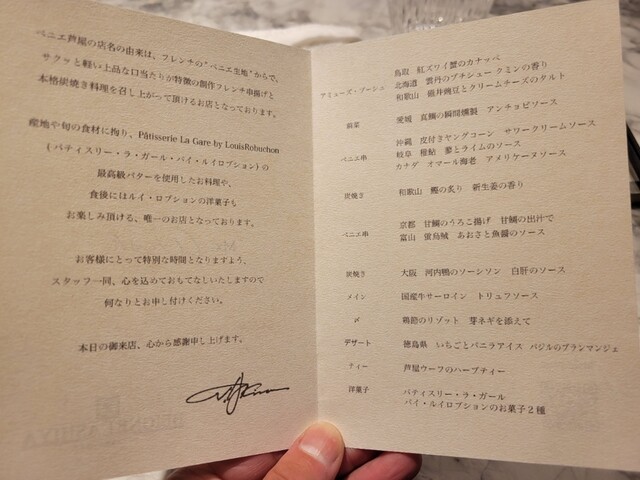 ベニエ芦屋の店名の由来は、フレンチの"ベニエ生地"からで、
サクッと軽い上品な口当たりが特徴の創作フレンチ串揚げと
本格炭焼き料理を召し上がって頂けるお店となっております。
産地や旬の食材に拘り、Pâtisserie La Gare by LouisRobuchon
(パティスリー・ラ・ガール・バイ・ルイロブション)の
最高級バターを使用したお料理や、
食後にはルイ・ロブションの洋菓子も
お楽しみ頂ける、唯一のお店となっております。
お客様にとって特別な時間となりますよう、
スタッフ一同、心を込めておもてなしいたしますので
何なりとお申し付けください。
本日の御来店、心から感謝申し上げます。
アミューズ・ブーシュ
鳥取 紅ズワイ蟹のカナッペ
北海道 雲丹のプチシュー クミンの香り
和歌山 碓井豌豆とクリームチーズのタルト
前菜 愛媛 真鯛の瞬間燻製 アンチョビソース
ベニエ串
沖縄 皮付きヤングコーン サワークリームソース
岐阜 稚鮎 蓼とライムのソース
カナダ オマール海老 アメリケーヌソース
炭焼き 和歌山 鰹の炙り 新生姜の香り
ベニエ串
京都 甘鯛のうろこ揚げ 甘鯛の出汁で
富山 蛍烏賊 あおさと魚醤のソース
炭焼き 大阪 河内鴨のソーシソン 白肝のソース
メイン 国産牛サーロイン トリュフソース
〆 鶏節のリゾット 芽ネギを添えて
デザート 徳島県 いちごとバニラアイス バジルのブランマンジェ
ティー 芦屋ウーフのハーブティー
洋菓子 パティスリー・ラ・ガール
バイ・ルイロブションのお菓子2種